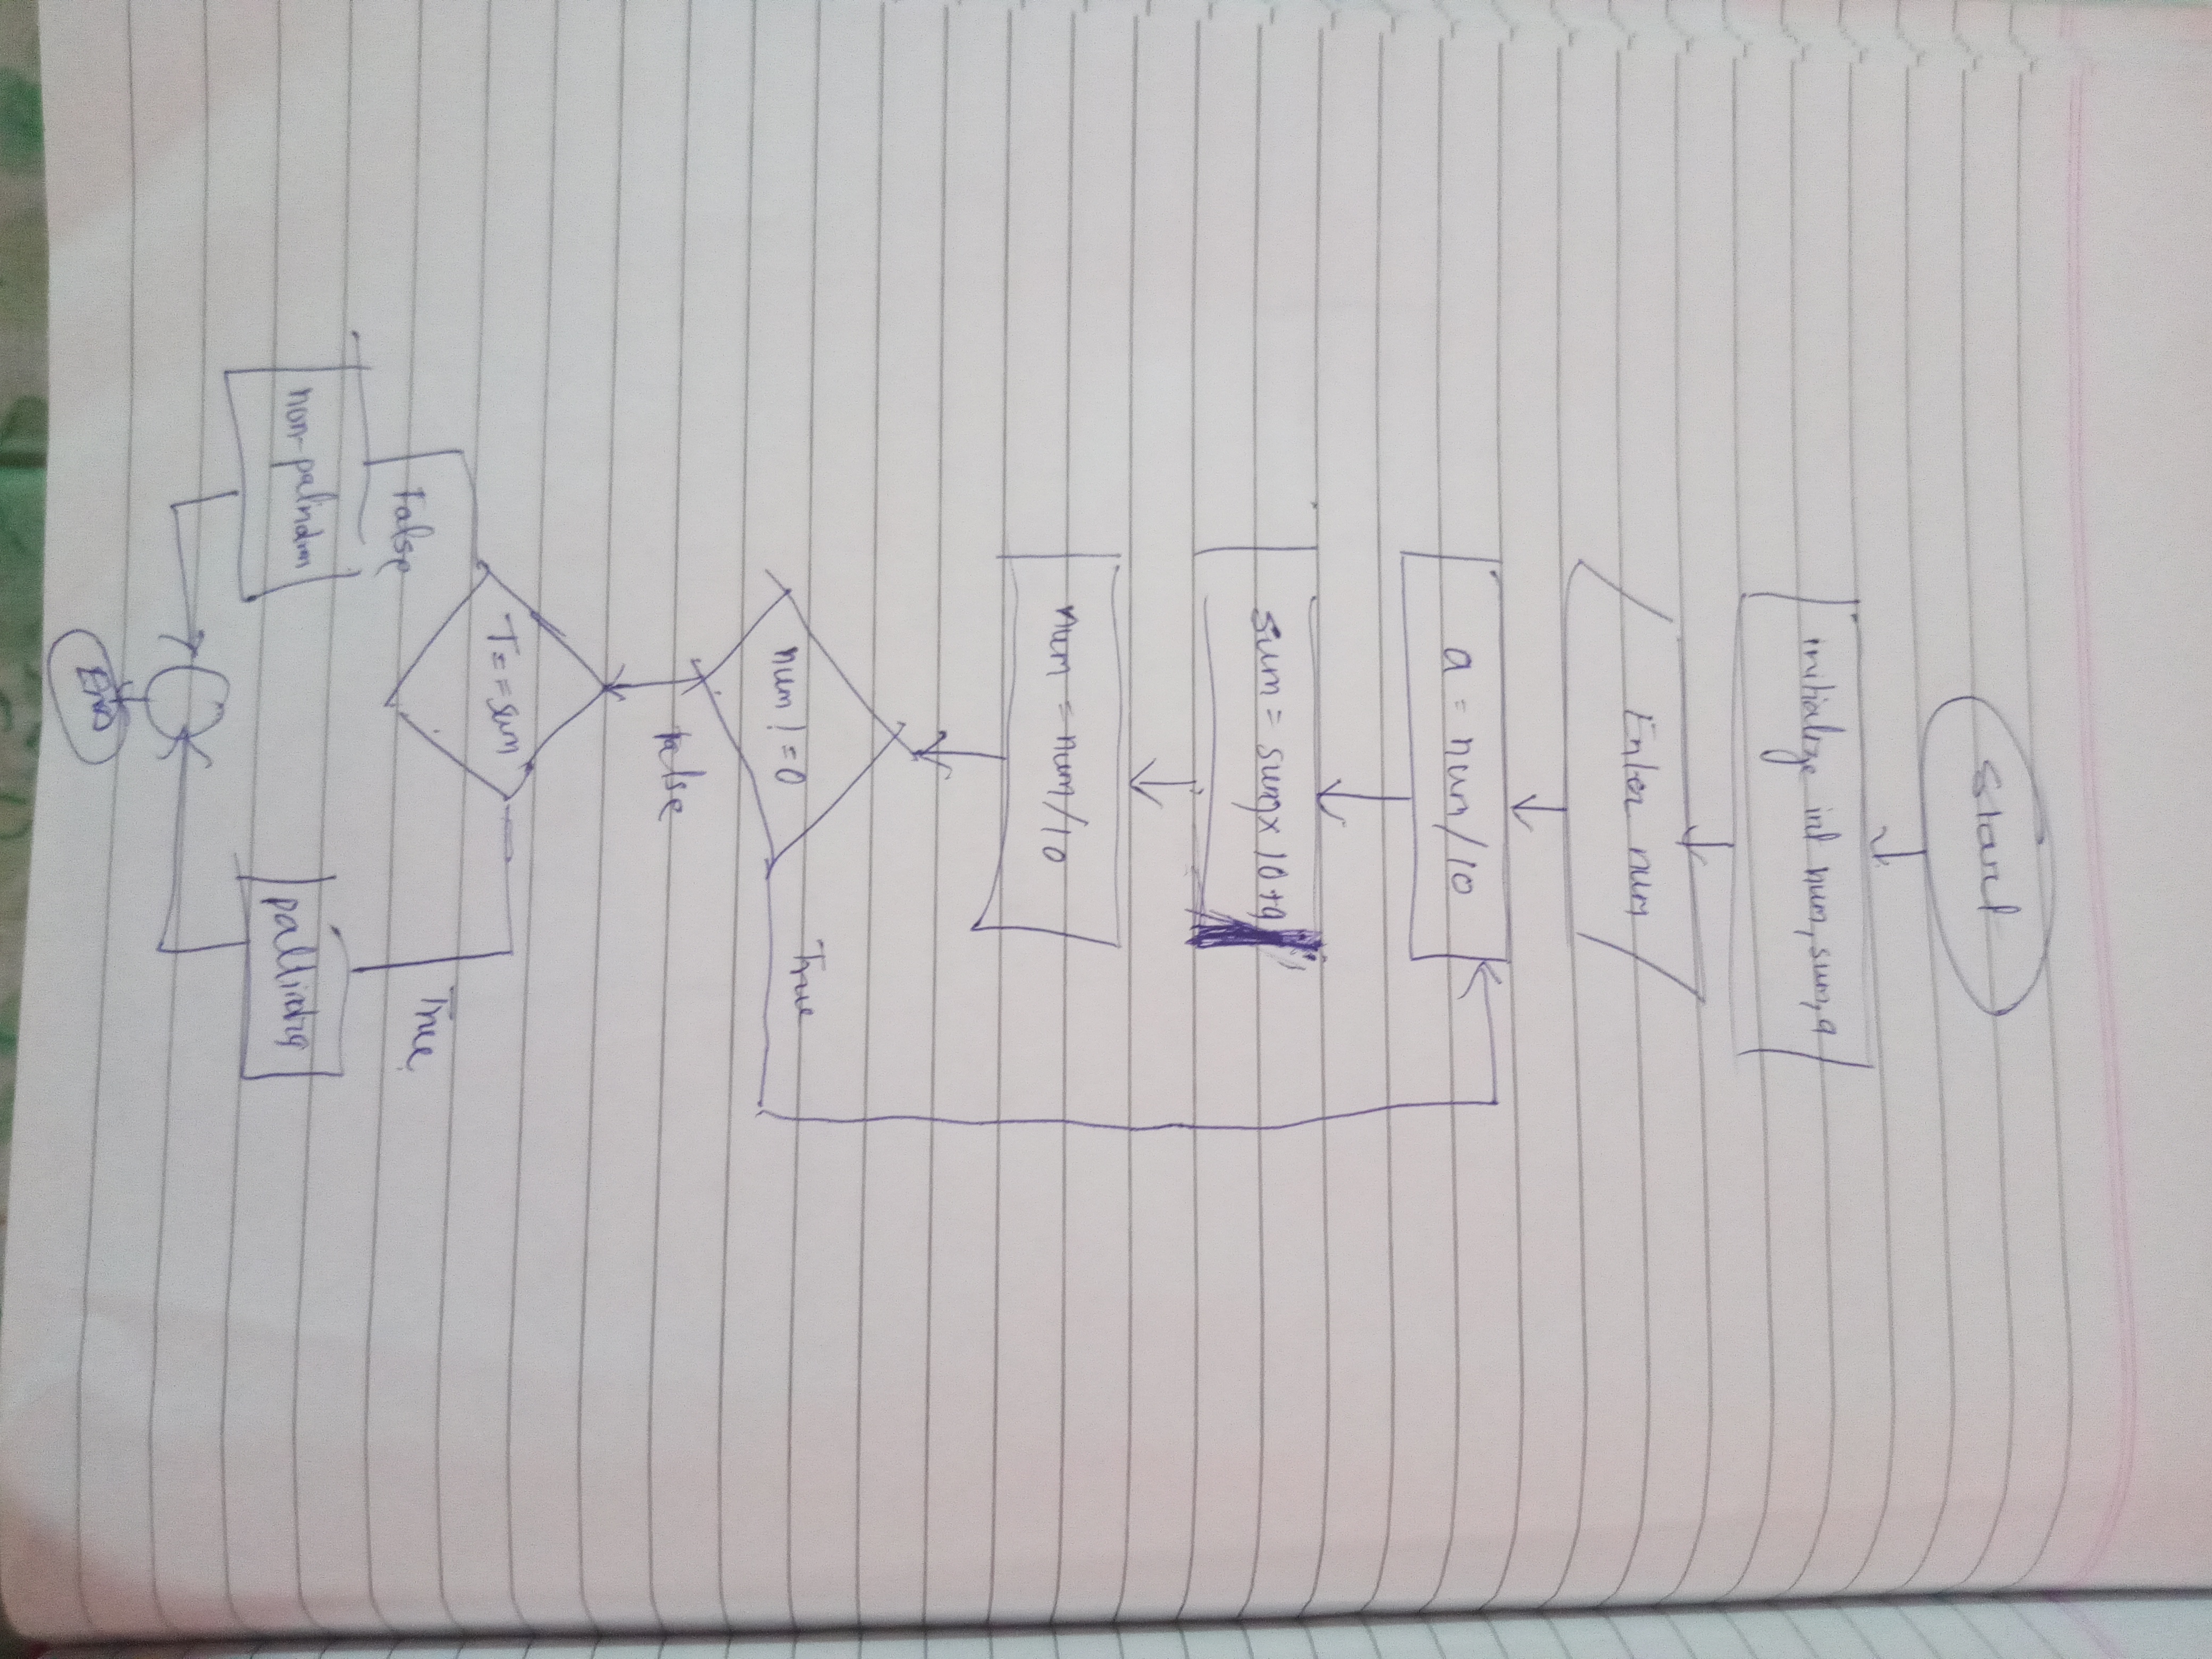 Start
initialize int num, sum, a
Enter num
a = num/10
sum = sum x 10+a
num = num/10
num != 0
True
False
T==sum
False
True
non-palindrom